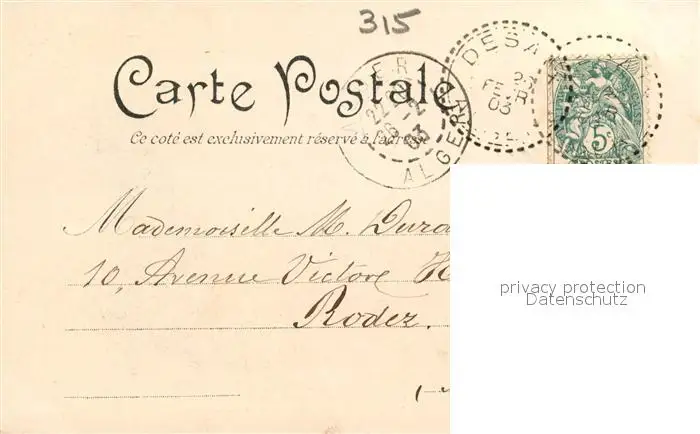 315
Carte Postale
Ce coté est exclusivement réservé à l'adresse
ALGER
22
26 -2
03
ALGER
DESA
FEVR
03
5c
POSTES
Mademoiselle M. Dura
10, Avenue Victore H
Rodez.
privacy protection
Datenschutz